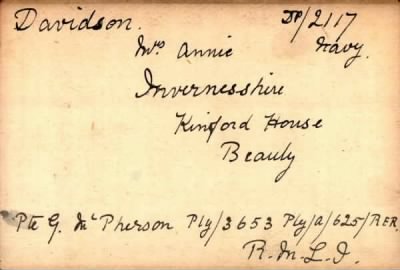 Davidson. DP/2117
Mrs Annie Navy.
Invernesshire
Kinford House
Beauly
Pte G. McPherson Ply/3653 Ply/a/625/RER.
R.M.L.I.